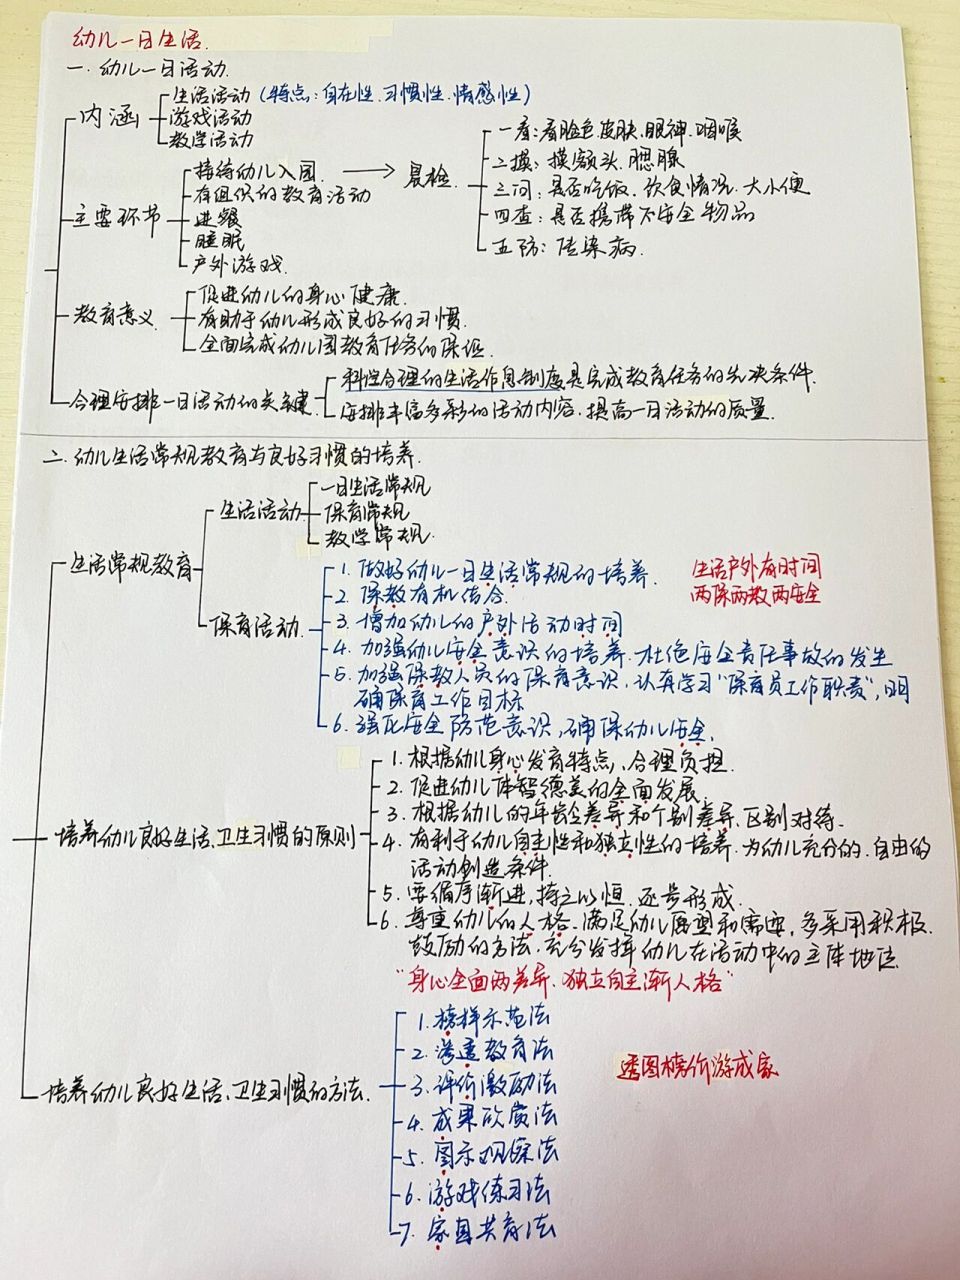 幼儿一日生活.
一. 幼儿一日活动.
内涵
生活活动 (特点: 自在性. 习惯性. 情感性)
游戏活动
教学活动
主要环节
接待幼儿入园. → 晨检.
有组织的教育活动
进餐
睡眠
户外游戏.
一看: 看脸色. 皮肤. 眼神. 咽喉
二摸: 摸额头. 腮腺
三问: 是否吃饭. 饮食情况. 大小便
四查: 是否携带不安全物品
五防: 传染病.
教育意义
促进幼儿的身心健康.
有助于幼儿形成良好的习惯.
全面完成幼儿园教育任务的保证.
合理安排一日活动的关键
科学合理的生活作息制度是完成教育任务的先决条件.
安排丰富多彩的活动内容. 提高一日活动的质量.
二. 幼儿生活常规教育与良好习惯的培养.
生活常规教育
生活活动
一日生活常规
保育常规
教学常规.
保育活动.
1. 做好幼儿一日生活常规的培养.
2. 保教有机结合.
3. 增加幼儿的户外活动时间
4. 加强幼儿安全意识的培养. 杜绝安全责任事故的发生
5. 加强保教人员的保育意识, 认真学习“保育员工作职责”, 明
确保育工作目标
6. 强化安全防范意识, 确保幼儿安全.
生活户外有时间
两保两教两安全
培养幼儿良好生活、卫生习惯的原则
1. 根据幼儿身心发育特点, 合理负担.
2. 促进幼儿体智德美的全面发展.
3. 根据幼儿的年龄差异和个别差异. 区别对待.
4. 有利于幼儿自主性和独立性的培养. 为幼儿充分的. 自由的
活动创造条件.
5. 要循序渐进, 持之以恒. 逐步形成.
6. 尊重幼儿的人格. 满足幼儿愿望和需要, 多采用积极.
鼓励的方法. 充分发挥幼儿在活动中的主体地位
“身心全面两差异. 独立自主渐人格”
培养幼儿良好生活、卫生习惯的方法.
1. 榜样示范法
2. 渗透教育法
3. 评价激励法
4. 成果欣赏法
5. 图示观察法
6. 游戏练习法
7. 家园共育法
透图榜价游成家